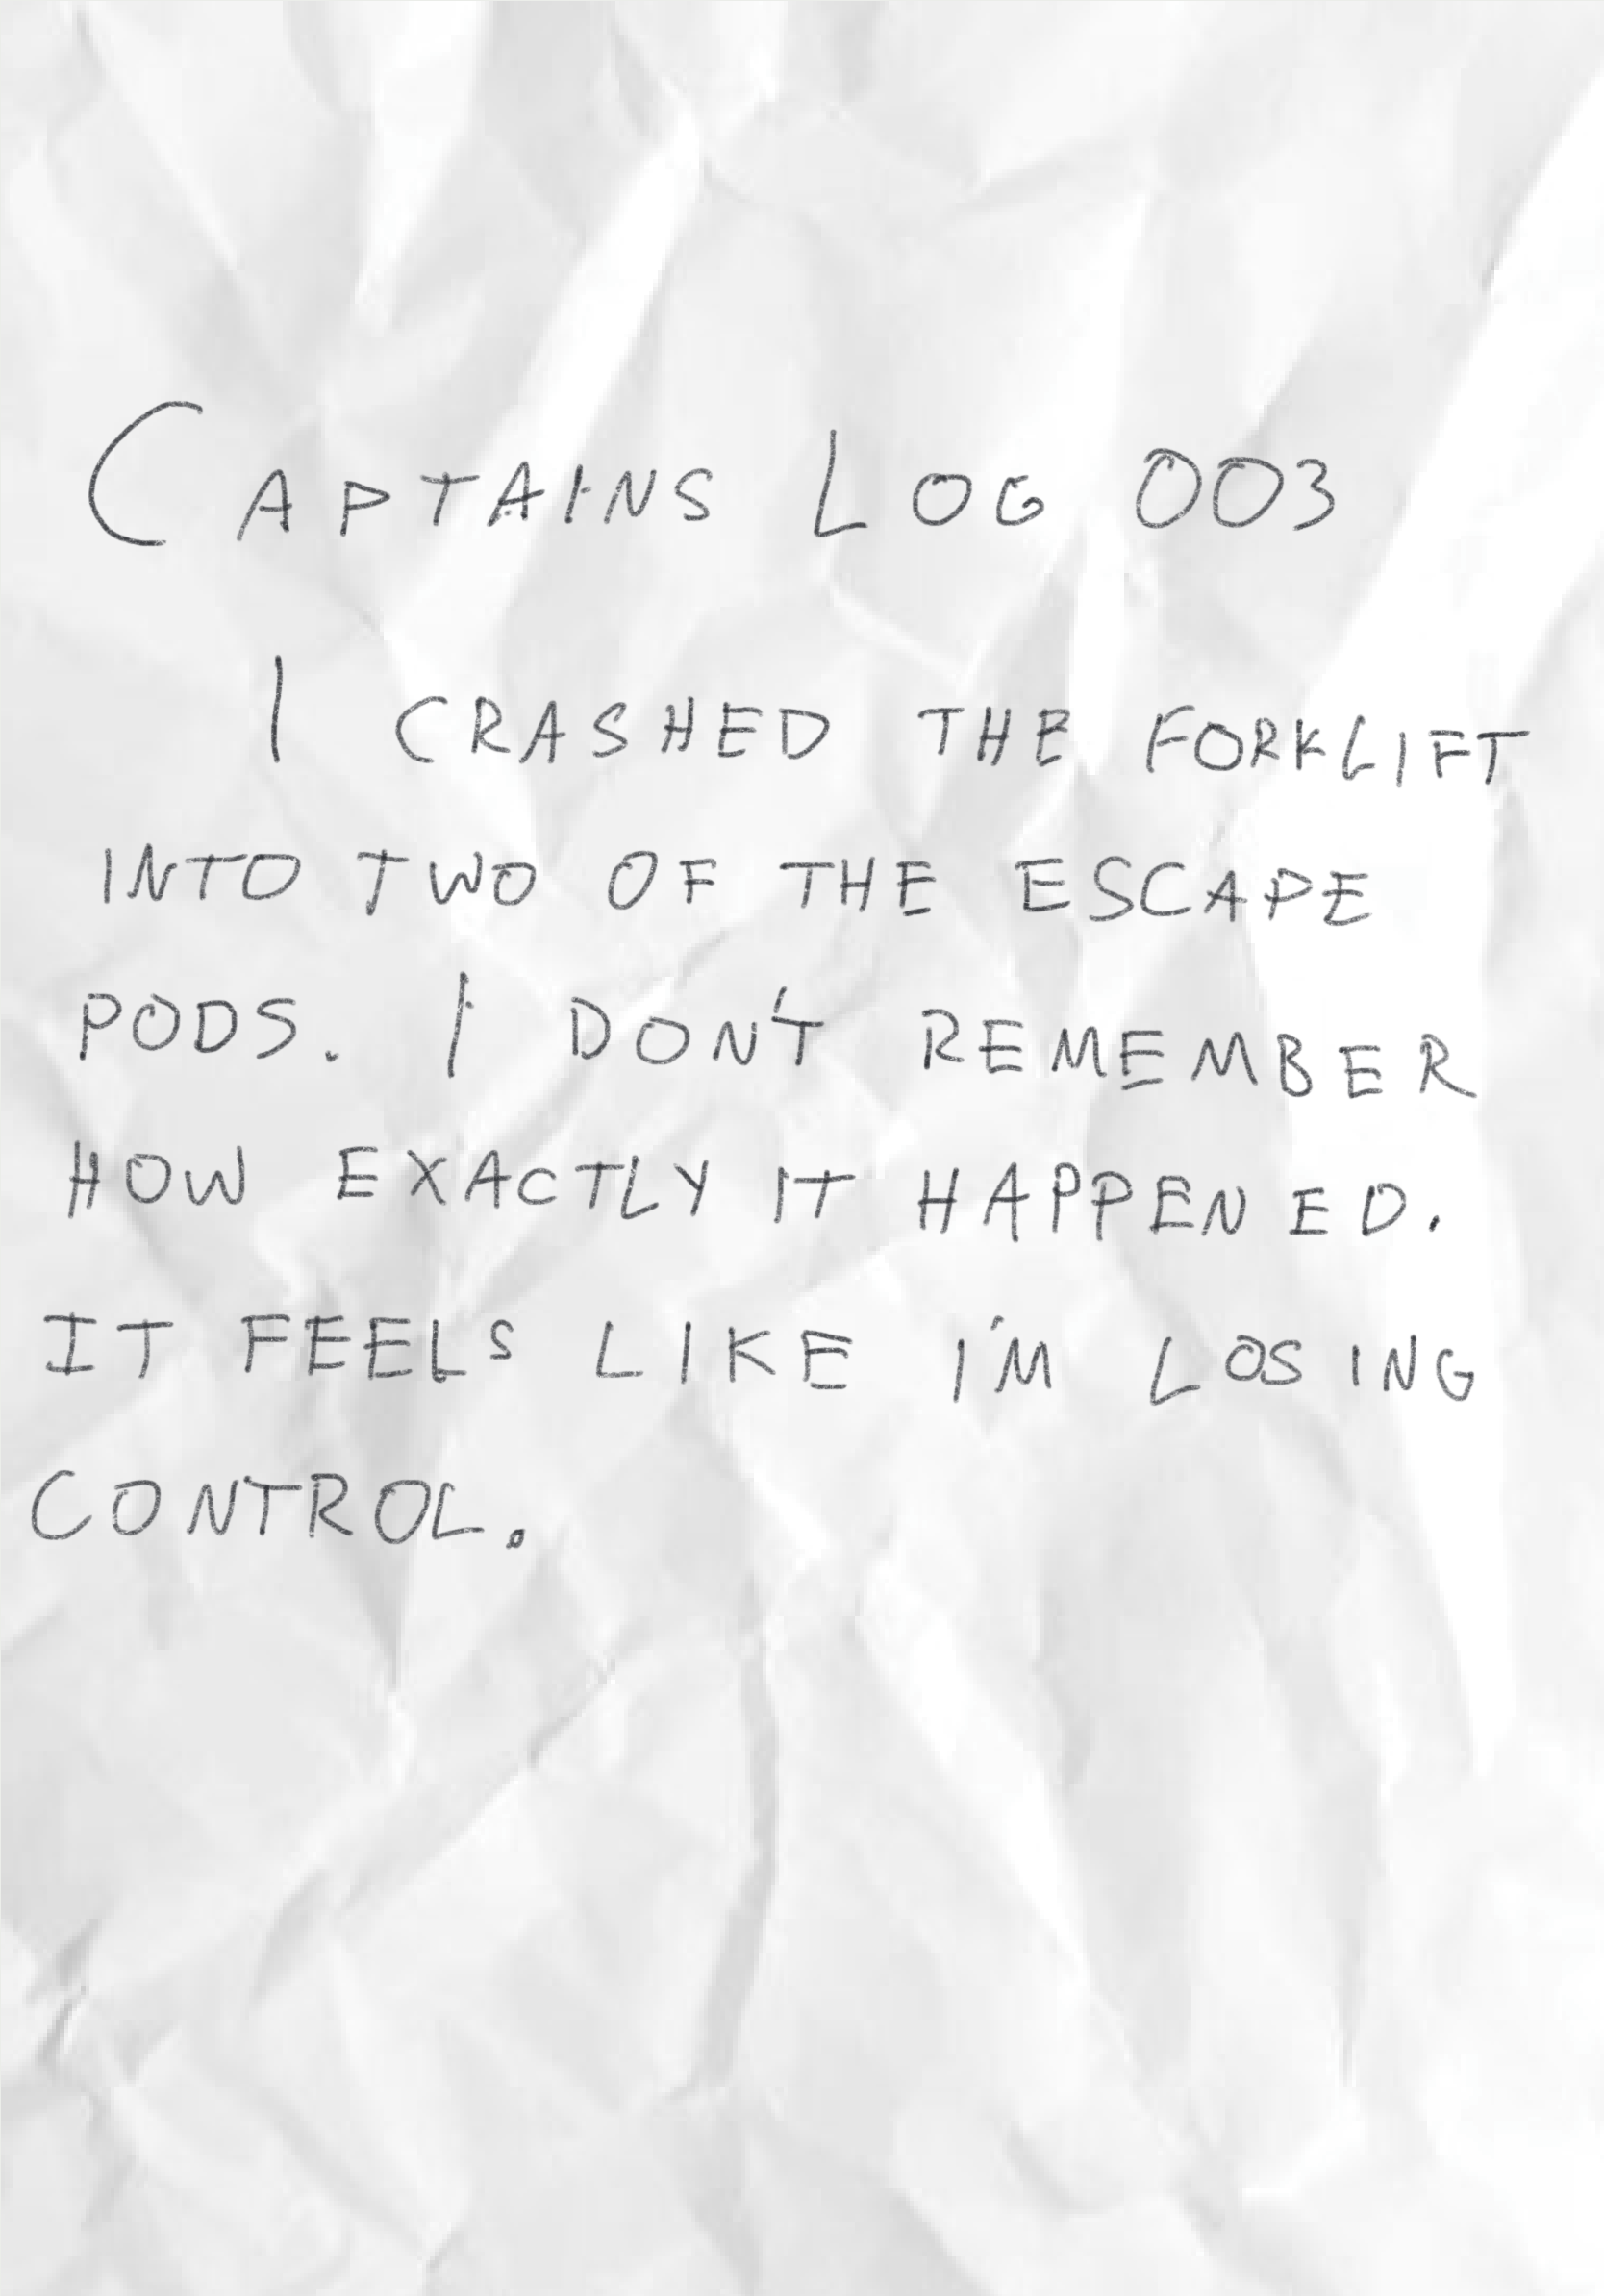 CAPTAINS LOG 003
I CRASHED THE FORKLIFT
INTO TWO OF THE ESCAPE
PODS. I DON'T REMEMBER
HOW EXACTLY IT HAPPENED.
IT FEELS LIKE I'M LOSING
CONTROL.